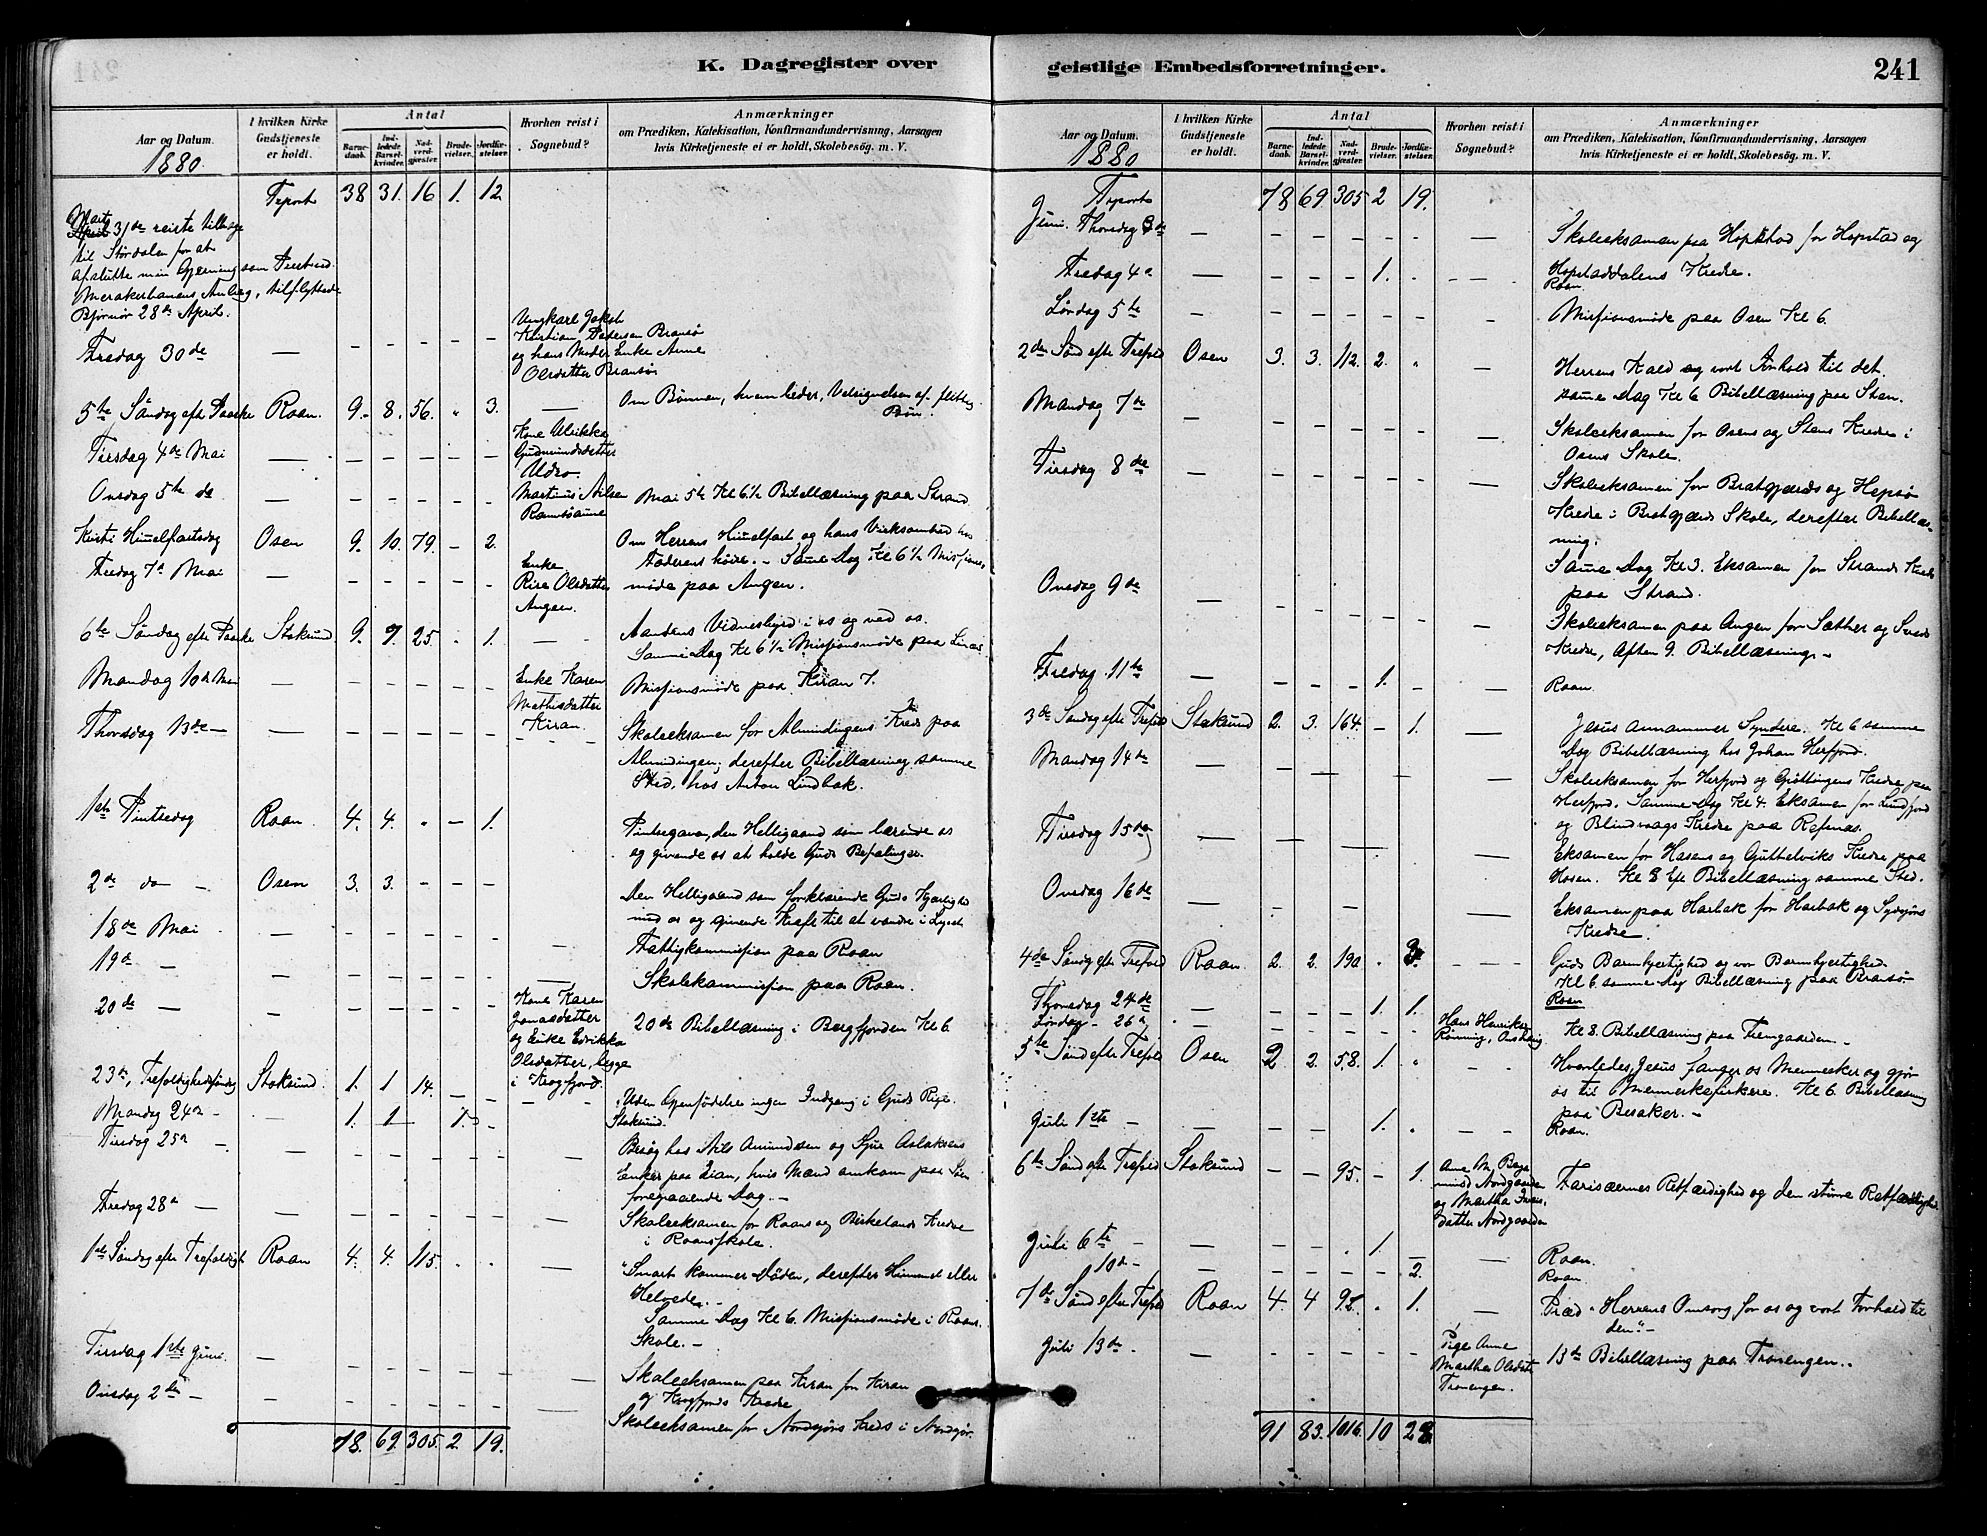 K. Dagregister over
Aar og Datum.
1880.
I hvilken Kirke Gudstjeneste er holdt.
Antal
Barnedaab.
Indledede Barselkvinder.
Nadverdgjæster.
Brudevielser.
Jordfæstelser.
Hvorhen reist i Sognebud?
Anmærkninger
om Prædiken, Katekisation, Konfirmandundervisning, Aarsagen
hvis Kirketjeneste ei er holdt, Skolebesøg. m. V.
Trport 38 31. 16 1. 12
Marts
31de reiste tilbage
til Størdalen for at
afslutte min Gjerning som Præst ved
Merakerbanens Anlæg, tilflyttede
Bjørnør 28de April.
Fredag 30de — Ungkarl Jakob
Kristian Pedersen Bransø
og hans Moder Enke Anne
Olsdatter Bransø
5te Søndag eft Paaske Roan. 9. 8. 56. " 3. — Om Bønnen, hvem beder, Velsignelsen af flittig
Bøn.
Tirsdag 4de Mai — Kone Ulrikka
Gudmundsdatter
Udro.
Onsdag 5te de — Martinus Nilsen
Ramsøaune
Mai 5te Kl 6½ Bibellæsning paa Strand
Kristi Himelfartsdag Osen 9. 10. 79. — 2. Om Herrens Himelfart og hans Virksomhed hos
Faderens høire. — Same Dag Kl 6½ Missions
møde paa Angen.
Fredag 7de Mai — Enke
Olsdatter
Angen.
6te Søndag efter Paaske Stoksund 9. 7. 25. - 1. — Aandens Vidnesbyrd i os og ved os.
Samme Dag Kl 6½ Missionsmøde paa
Mandag 10de Mai Enke Karen
Mathisdatter
Kiran.
Missionsmøde paa Kiran 7.
Thorsdag 13de — Skoleeksamen for Almindingens Kreds paa
Almindingen; derefter Bibellæsning samme
Sted, hos Anton Lindbak.
1ste Pintsedag Roan 4. 4. - — 1. Pintsegaven, den Helligaand som lærende os
og givende os at holde Guds Befalinger.
2de do — Osen 3. 3. - - - Den Helligaand som forklarende Guds Kjærlighed
mod os og givende Kraft til at vandre i Lyset
18de Mai — Fattigkommission paa Roan
19de — Skolekommission paa Roan.
20de — Kone Karen
Jonasdatter
og Enke Edrikka
Olsdatter,
i Krogfjord.
20de Bibellæsning i Bergfjorden Kl 6
23de, Trefoldighedssøndag Stoksund. 1. 1 14. — Uden Gjenfødelse ingen Indgang i Guds Rige.
Mandag 24de — 1. 1 — 1. Stoksund.
Tirsdag 25de — Besøg hos Nils Amundsen og Aslaksens
Enker paa, hvis Mænd omkom paa Søen
foregaaende Dag. —
Fredag 28de — Skoleeksamen for Roans og Birkelands Kredse
i Roansskole.
1ste Søndag efter Trefoldigh Roan 4. 4. 115. - - — "Snart kommer Døden, derefter Himmel eller
Helvede." —
Samme Dag Kl 6. Missionsmøde i Roans
Skole. —
Tirsdag 1ste Juni. — Skoleeksamen paa Kiran for Kiran
og Krogfjords Kredse
Onsdag 2de — Skoleeksamen for Nordsjørs Kreds i Nordsjør.
78. 69. 305. 2. 19.
geistlige Embedsforretninger.
241
Aar og Datum.
1880
I hvilken Kirke Gudstjeneste er holdt.
Antal
Barnedaab.
Indledede Barselkvinder.
Nadverdgjæster.
Brudevielser.
Jordfæstelser.
Hvorhen reist i Sognebud?
Anmærkninger
om Prædiken, Katekisation, Konfirmandundervisning, Aarsagen
hvis Kirketjeneste ei er holdt, Skolebesøg. m. V.
Trport 78 69 305 2 19.
Juni. Thorsdag 3de — Skoleeksamen paa Hopstad for Hopstad og
Hopstaddalens Kredse.
Fredag 4de — 1. Roan.
Lørdag 5te — Missionsmøde paa Osen Kl 6.
2den Sønd efter Trefold Osen 3. 3. 112. 2. " — Herrens Kald og vort Forhold til det.
same Dag Kl 6 Bibellæsning paa Sten.
Mandag 7de — Skoleeksamen for Osens og Stens Kredse i
Osens Skole.
Tirsdag 8de — Skoleeksamen for Bratgjærds og Hepsø
Kredse i Bratgjærds Skole, derefter Bibellæs-
ning.
Same Dag Kl 3. Eksamen for Strands Kreds
paa Strand.
Onsdag 9de — Skoleeksamen paa Angen for Sæther og
Kredse, Aften 9. Bibellæsning. —
Fredag 11te — 1. Roan.
3de Søndag efter Trefold Stoksund 2. 3. 164. — 1. — Jesus annammer Syndere. Kl 6 samme
Dag Bibellæsning hos Johan Herfjord.
Mandag 14de — Skoleeksamen for Herfjord og Gjøltingens Kredse paa
Herfjord. Samme Dag Kl 4. Eksamen for Lindfjord
og Blindvaags Kredse paa Refsnæs.
Tirsdag 15de — Eksamen for Hosens og Kredse paa
Hosen. Kl 8 Ef Bibellæsning samme Sted.
Onsdag 16de — Eksamen paa Harbak for Harbak og Sydsjørs
Kredse.
4de Søndg efter Trefold Roan. 2. 2. 190. - 3. — Guds Barmhjertighed og vor Barmhjertighed.
Kl 6 samme Dag Bibellæsning paa Bransø
Thorsdag 24de — 1. 1. Roan
Lørdag 26de Hans Henriksen
Rønning,
Kl 8. Bibellæsning paa Fremgaarden. —
5te Sønd efter Trefold Osen 2 2. 58. 1. " Hvorledes Jesus fanger os Mennesker og gjør
os til Menneskefiskere. Kl 6. Bibellæsning
paa Besaker. —
Juli 1ste — 1. . Roan.
6te Sønd efter Trefold Stoksund — — 95. — 1. Ane M.
Nordgaarden
og Martha
datter Nordgaarden
Farisæernes Retfærdighed og den større Retfærdighed
Juli 6te — 1. Roan.
10de — 2. Roan.
7de Sønd efter Trefold Roan 4. 4 92. . 1. — Præd. "Herrens Omsorg for os og vort Forhold til
den." —
Juli 13de. — Pige Anne
Martha Olsdatter
Tranengen.
13de Bibellæsning paa Tranengen.
91 83. 1016. 10 28